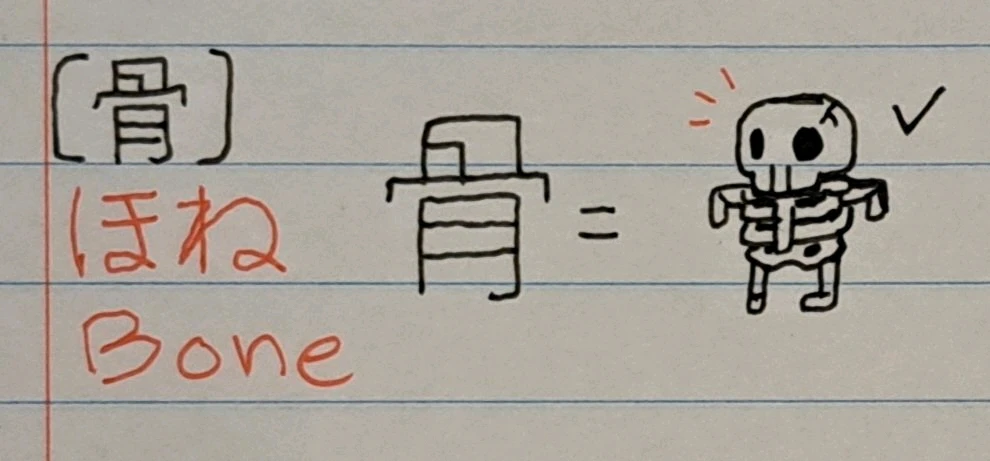 [骨] 骨 =
ほね
Bone